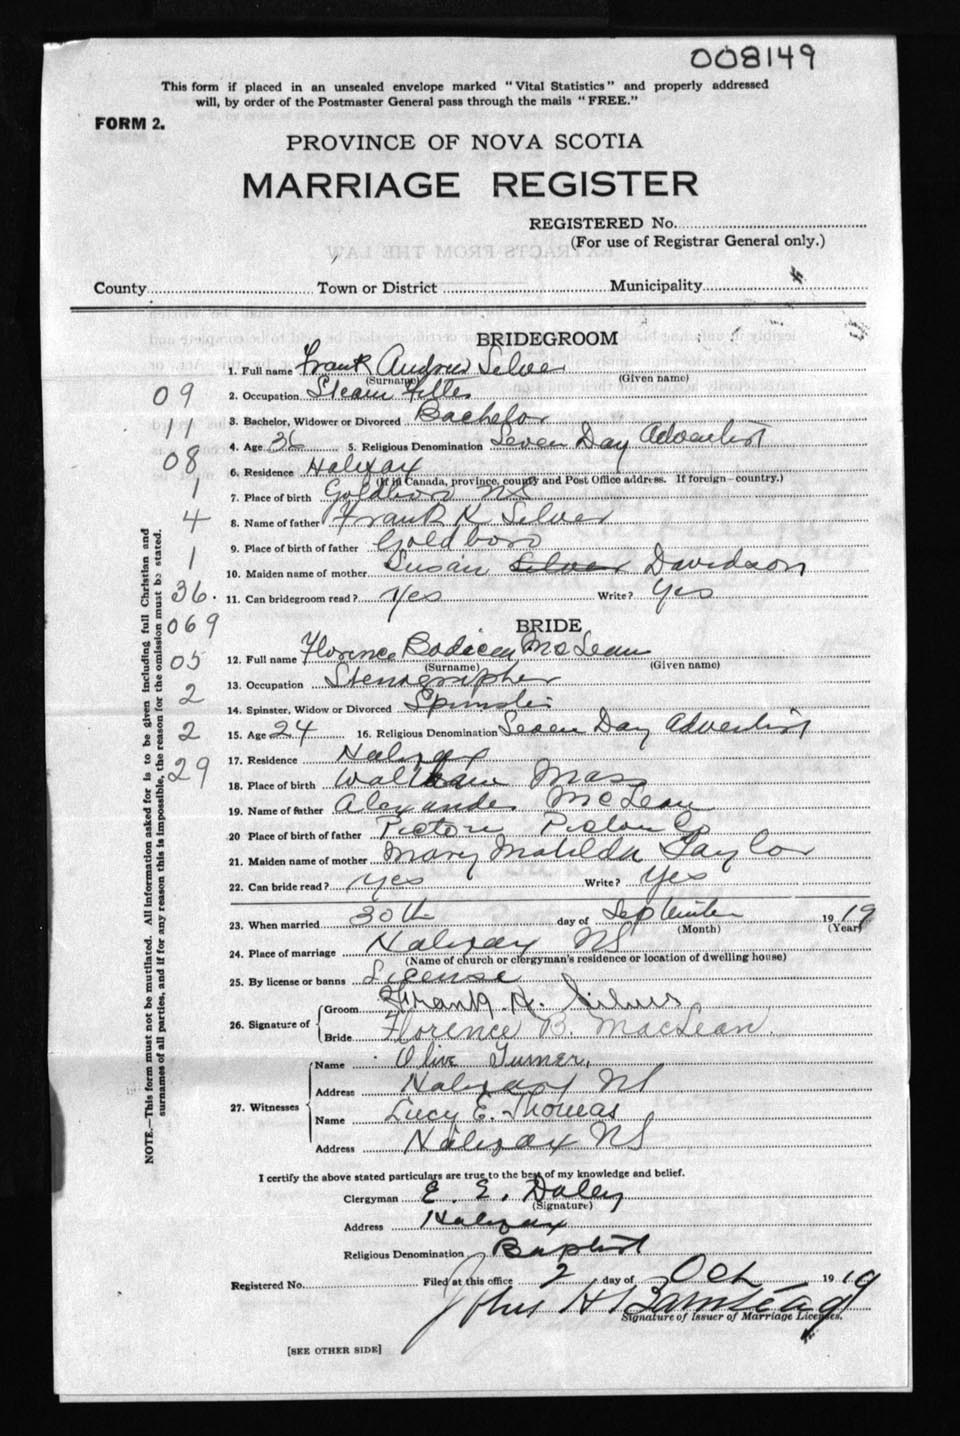 008149
This form if placed in an unsealed envelope marked "Vital Statistics" and properly addressed
will, by order of the Postmaster General pass through the mails "FREE."
FORM 2.
PROVINCE OF NOVA SCOTIA
MARRIAGE REGISTER
REGISTERED No.
(For use of Registrar General only.)
County Town or District Municipality
BRIDEGROOM
1. Full name Frank Andrew Silver
(Surname) (Given name)
09 2. Occupation Steam Fitter
11 3. Bachelor, Widower or Divorced Bachelor
4. Age 36 5. Religious Denomination Seven Day Adventist
08 6. Residence Halifax
(If in Canada, province, county and Post Office address. If foreign—country.)
1 7. Place of birth Goldboro NS
4 8. Name of father Frank K Silver
9. Place of birth of father Goldboro
1 10. Maiden name of mother Susan Silver Davidson
36. 11. Can bridegroom read? Yes Write? Yes
069 BRIDE
12. Full name Florence McLean
(Surname) (Given name)
05 13. Occupation Stenographer
2 14. Spinster, Widow or Divorced Spinster
2 15. Age 24 16. Religious Denomination Seven Day Adventist
17. Residence Halifax
29 18. Place of birth Waltham Mass
19. Name of father Alexander McLean
20 Place of birth of father Pictou Pictou Co
21. Maiden name of mother Mary Matilda Taylor
22. Can bride read? yes Write? yes
23. When married 30th day of September 1919
(Month) (Year)
24. Place of marriage Halifax NS
(Name of church or clergyman's residence or location of dwelling house)
25. By license or banns License
26. Signature of Groom Frank A. Silver
Bride Florence B. MacLean.
27. Witnesses
Name Olive Turner,
Address Halifax NS
Name Lucy E. Thomas
Address Halifax NS
I certify the above stated particulars are true to the best of my knowledge and belief.
Clergyman E. E. Daley
(Signature)
Address Halifax
Religious Denomination Baptist
Registered No. Filed at this office 2 day of Oct 1919
John H
Signature of Issuer of Marriage Licenses.
[SEE OTHER SIDE]
NOTE.—This form must not be mutilated. All information asked for is to be given including full Christian and
surnames of all parties, and if for any reason this is impossible, the reason for the omission must be stated.